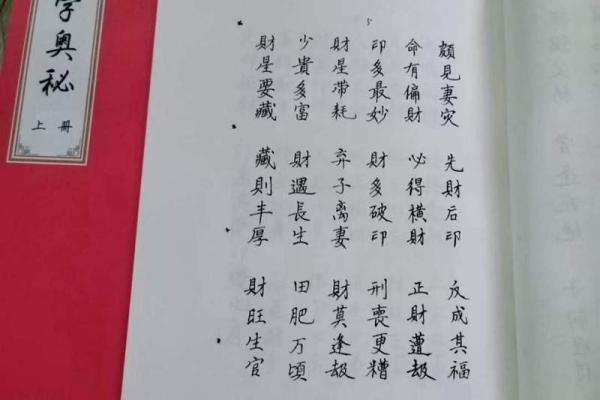 奥秘
上册
財星要藏 藏則丰厚 財旺生官
少貴多富 財遇長生 田肥万頃
財星滞耗 弃子离妻 財莫逢劫
印多最妙 財多破印 刑喪更糟
命有偏財 必得橫財 正財遭劫
頗見妻灾 先財后印 反成其福